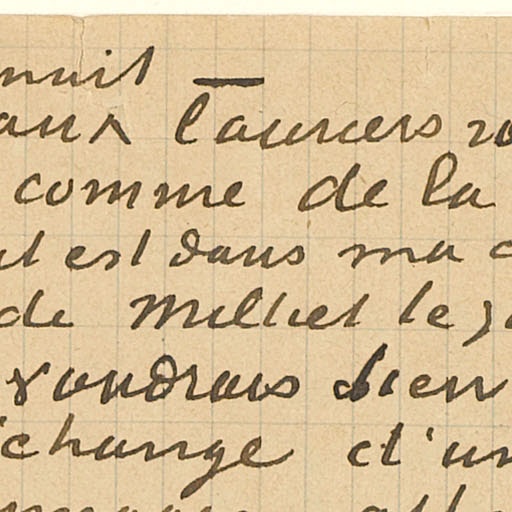 nuit —
aux lauriers ro
comme de la
est dans ma c
de Milliet le
voudrais bien
échange d'un